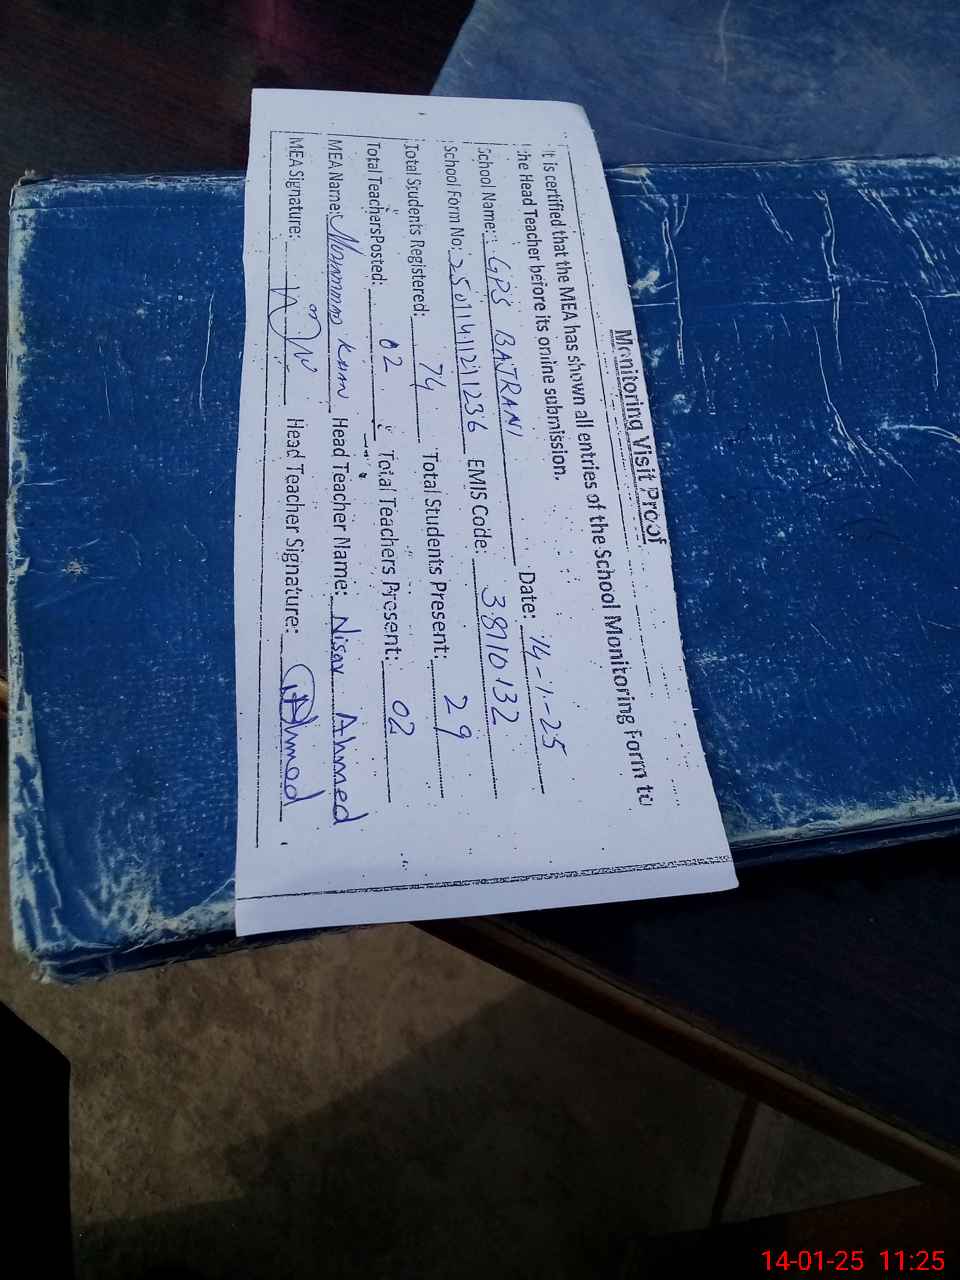 Monitoring Visit Proof
It is certified that the MEA has shown all entries of the School Monitoring Form to
the Head Teacher before its online submission.
School Name: GPS BAJRANI Date: 14-1-25
School Form No: 25011411211236 EMIS Code: 38710132
Total Students Registered: 74 Total Students Present: 29
Total Teachers Posted: 02 Total Teachers Present: 02
MEA Name: MUHAMMAD KHAN Head Teacher Name: Nisar Ahmed
MEA Signature: Head Teacher Signature: Ahmed
14-01-25 11:25